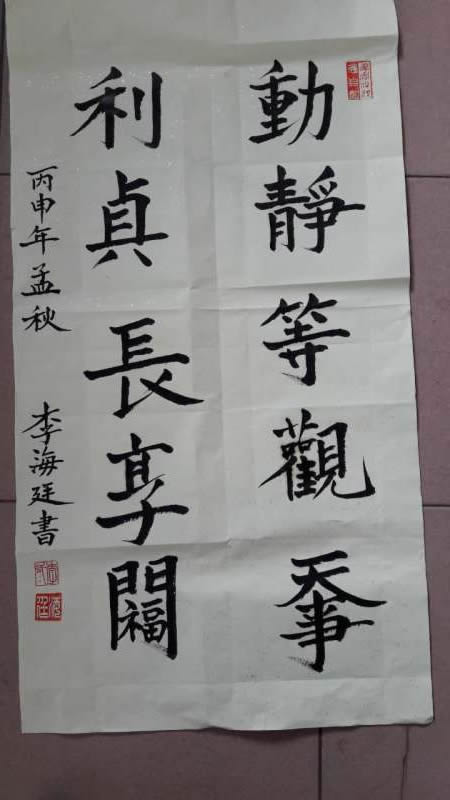 動靜等觀天事
利貞長享門福
丙申年孟秋 李海廷書